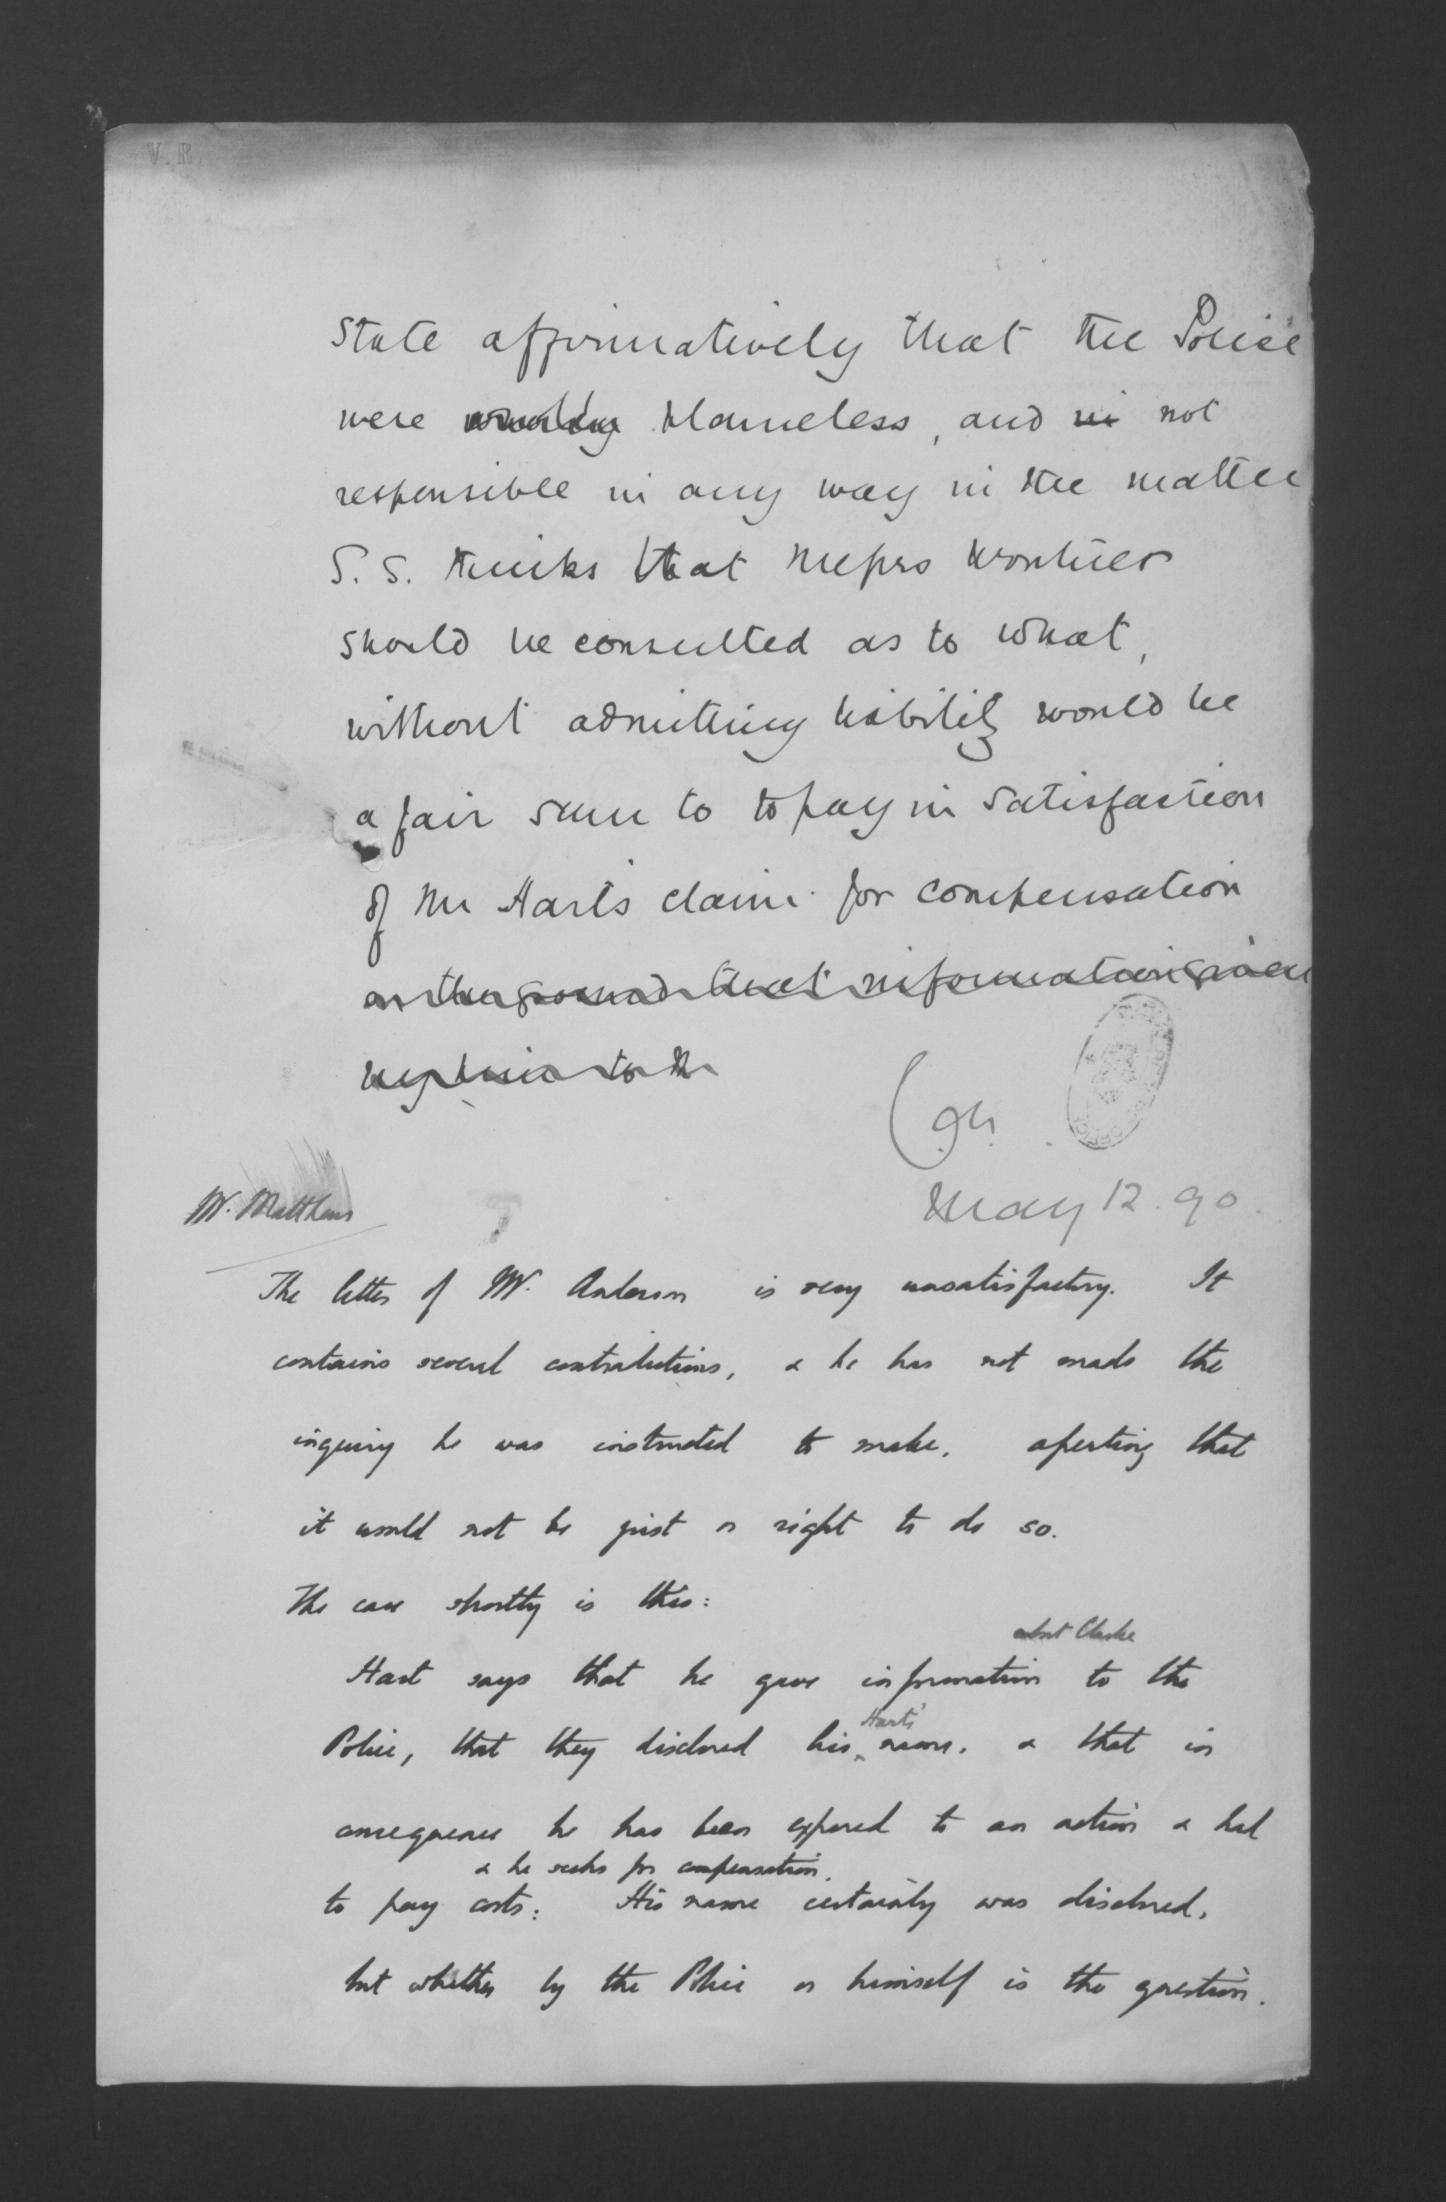 V.R.
state affirmatively that the Police
were wholly blameless, and in not
responsible in any way in the matter
S.S. thinks that Messrs Wontner
should be consulted as to what,
without admitting liability would be
a fair sum to to pay in satisfaction
of Mr Hart's claim for compensation
on the ground that information given
by him to the
May 12. 90.
Mr. Matthews
The letter of Mr. Anderson is very unsatisfactory. It
contains several contradictions, & he has not made the
inquiry he was instructed to make, asserting that
it would not be just or right to do so.
The case shortly is this:
about Clarke
Hart says that he gave information to the
Hart's
Police, that they disclosed his name, & that in
consequence he has been exposed to an action & had
& he seeks for compensation.
to pay costs: His name certainly was disclosed,
but whether by the Police or himself is the question.